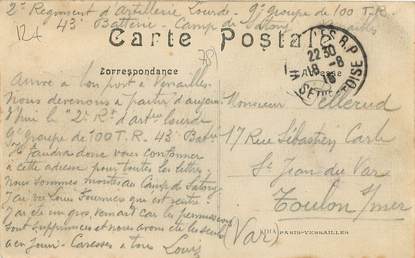 2e Regiment d'Artillerie Lourde - 9e groupe de 100 T.R.
43e Batterie - Camp de Satory Versailles
Carte Postale
Correspondance
Adresse
22 30
18 - 8
16
SEINE
OISE
Arrivé à bon port à Versailles
Nous devenons à partir d'aujour
d'hui le "2e Rt d'art lourde
9e groupe de 100 T.R. 43e Batrie
Il faudra donc vous conformer
à cette adresse pour toutes les lettres;
Nous sommes montés au Camp de Satory
J'ai vu Louis Fournes qui est rentré.
J'ai eu un gros, veinard car les permissions
sont supprimées et nous avons été les seuls
à en jouir - Caresses à tous Louis
Monsieur Pellerud
17 Rue Sébastien Carle
St Jean du Var
Toulon s/mer
(Var)
PARIS-VERSAILLES